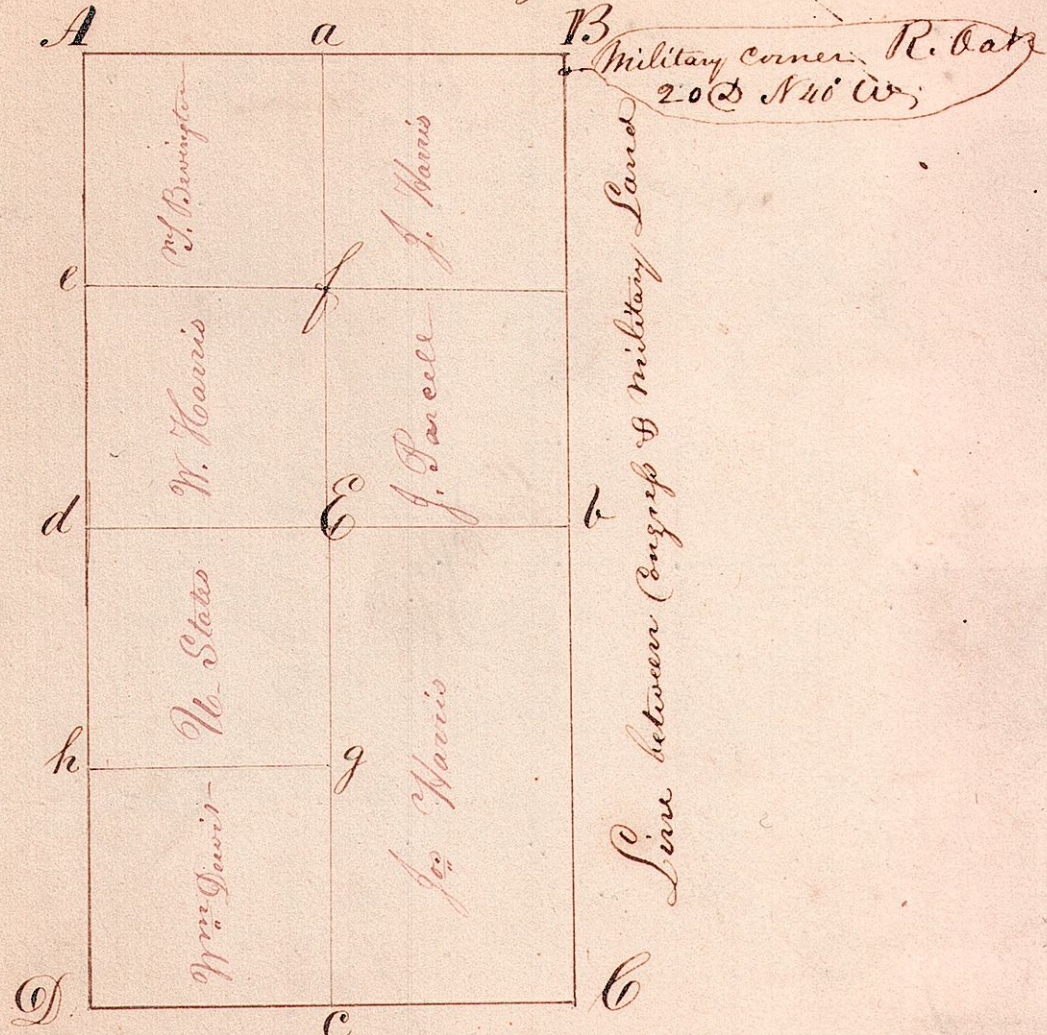 A a B
Military corner R. Oak
20 D N 40 W
S. Bevington
J. Harris
e f
W. Harris
J. Parcell
d E b
U. States
Jos Harris
h g
Wm Davis
D c C
Line between Congress & Military Land